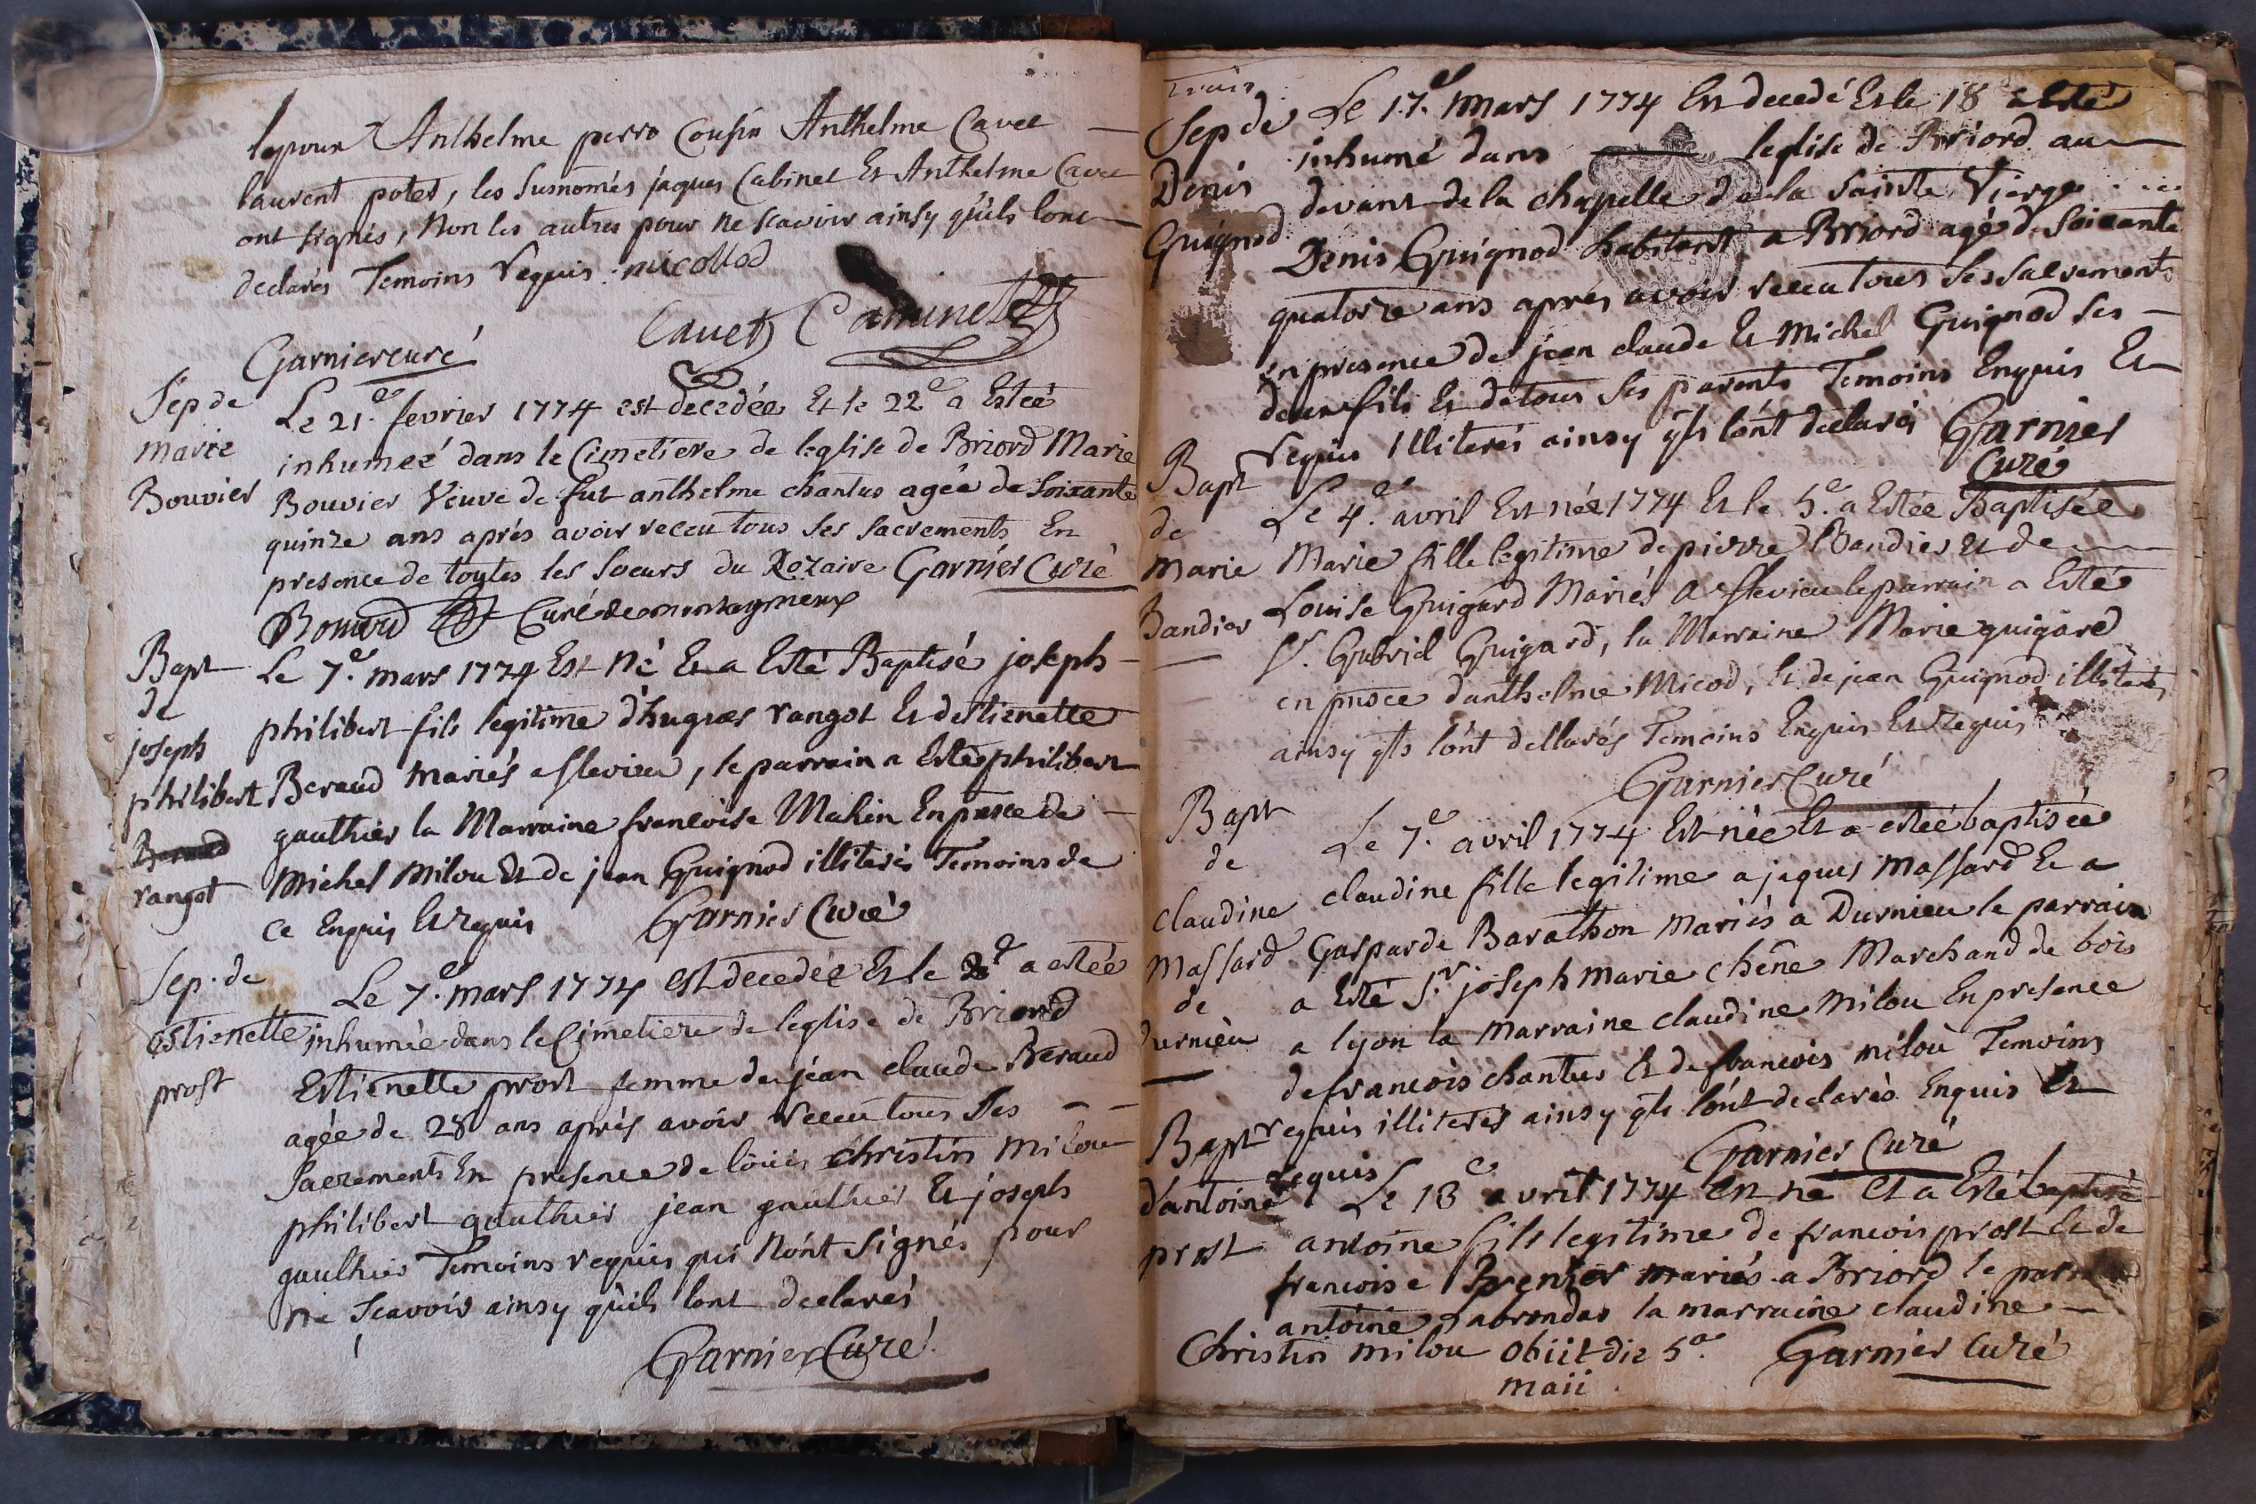 lepoux Anthelme perro Cousin Anthelme Cavet
laurent potet, les susnomés jaques Cabinet Et Anthelme Cavet
ont signés, Non les autres pour ne scavoir ainsy qu'ils lont
declarés Temoins requis : micollod
Cavet Cabinet
Garnier curé
Sep de
marie
Bouvier
Le 21.e fevrier 1774 est decedée Et le 22e a Estée
inhumeé dans le Cimetiere de leglise de Briord Marie
Bouvier Veuve de fut anthelme chantus ageé de soixante
quinze ans aprés avoir receu tous ses sacrements En
presence de toutes les soeurs du Rozaire Garnier Curé
Curé de montagnieux
Bapt
de
joseph
philibert
Beraud
rangot
Le 7.e mars 1774 Est Né Et a Esté Baptisé joseph
philibert fils legitime d'hugues rangot Et destienette
Beraud mariés a flevieu, le parrain a Esté philibert
gauthier la Marraine francoise Makin En psce de
michel milou Et de jean Guignod illiterés Temoins de
ce Enquis Et requis Garnier Curé
Sep. de
estienette
prost
Le 7.e mars 1774 est decedée Et le a estée
inhumée dans le Cimetiere de leglise de Briord
Estienette prost femme de jean claude Beraud
agée de 28 ans aprés avoir receu tous ses
sacrements En presence de louis christin milou
philibert gauthier jean gauthier Et joseph
gauthier Temoins requis qui N'ont signés pour
ne scavoir ainsy qu'ils lont declarés
Garnier Curé
Sep de
Denis
Guignod
Le 17.e mars 1774 Est decedé Et le 18 a Esté
inhumé dans leglise de Briord au
devant de la chapelle de la sainte Vierge
Denis Guignod habitant a Briord agé de soixante
quatorze ans aprés avoir receu tous ses sacrements
en presence de jean claude Et michel Guignod ses
deux fils Et de tous ses parents Temoins Enquis Et
requis illiterés ainsy qls lónt declarés Garnier
Curé
Bapt
de
Marie
Bandier
Le 4.e avril Est née 1774 Et le 5.e a Estée Baptisée
Marie fille legitime de pierre Bandier et de
Louise Guigard Mariés a flevieu le parrain a Esté
sr. Gabriel Guigard, la Marraine Marie guigard
en psce danthelme Micod, Et de jean Guignod illiterés
ainsy qls lónt declarés Temoins Enquis Et Requis
Garnier Curé
Bapt
de
claudine
massard
de
durnieu
Le 7.e avril 1774 Est née Et a estée baptisée
claudine fille legitime a jaques massard Et a
Gasparde Barathon mariés a Durnieu le parrain
a Esté Sr. joseph marie chêne Marchand de bois
a lyon la marraine claudine milou En presence
de francois chantus Et de francois milou Temoins
requis illiterés ainsy qls lónt declarés Enquis Et
requis
Garnier Curé
Bapt
d'antoine
prost
Le 18.e avril 1774 est né Et a Esté baptisé
antoine fils legitime de francois prost Et de
francoise Brenier mariés a Briord le
antoine la marraine claudine
Christin milou obiit die 5a. Garnier Curé
maii